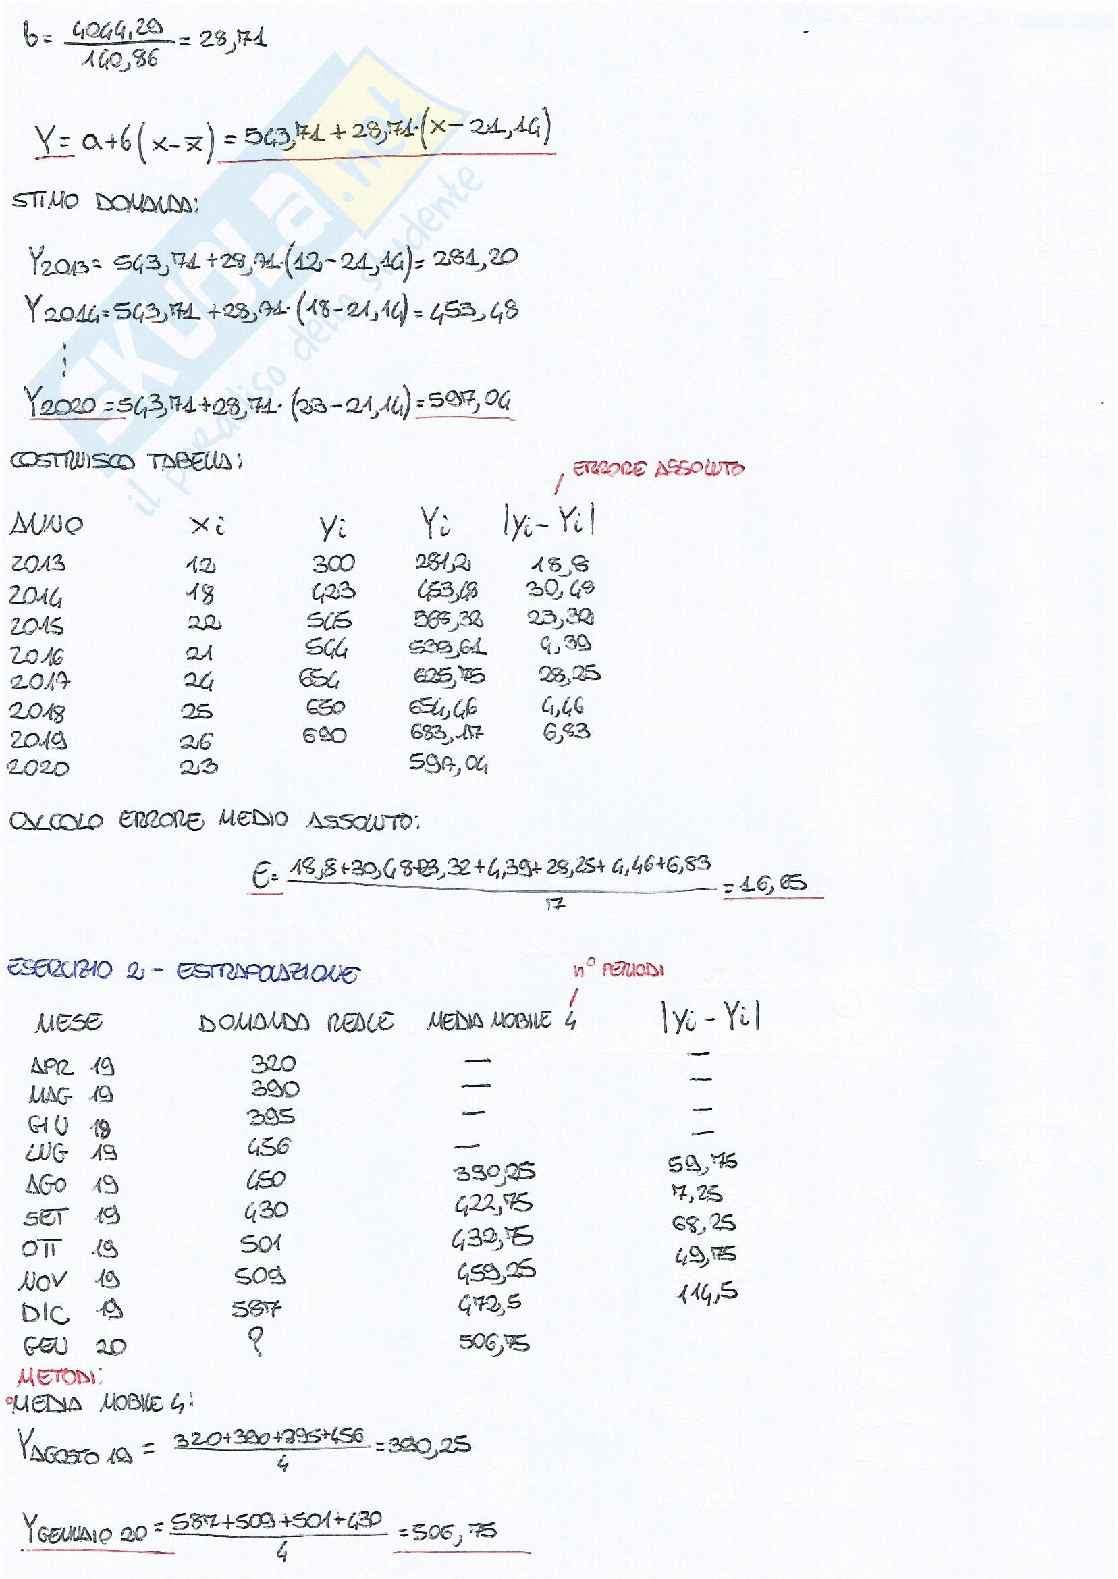 b = 4044,29 / 140,86 = 28,71
Y = a+b(x-x̄) = 543,71 + 28,71·(x-21,14)
STIMO DOMANDA:
Y2013 = 543,71 + 28,71·(12-21,14) = 281,20
Y2014 = 543,71 + 28,71·(18-21,14) = 453,48
⋮
Y2020 = 543,71 + 28,71·(23-21,14) = 597,04
COSTRUISCO TABELLA:
ERRORE ASSOLUTO
ANNO xi yi Yi |yi-Yi|
2013 12 300 281,2 18,8
2014 18 423 453,48 30,48
2015 22 545 568,32 23,32
2016 21 544 539,61 4,39
2017 24 654 625,75 28,25
2018 25 650 654,46 4,46
2019 26 690 683,17 6,83
2020 23 597,04
CALCOLO ERRORE MEDIO ASSOLUTO:
E = 18,8+30,48+23,32+4,39+28,25+4,46+6,83 / 7 = 16,65
ESERCIZIO 2 - ESTRAPOLAZIONE
n° PERIODI
MESE DOMANDA REALE MEDIA MOBILE 4 |yi-Yi|
APR 19 320 — —
MAG 19 390 — —
GIU 19 395 — —
LUG 19 456 — —
AGO 19 450 390,25 59,75
SET 19 430 422,75 7,25
OTT 19 501 432,75 68,25
NOV 19 509 459,25 49,75
DIC 19 587 472,5 114,5
GEN 20 ? 506,75
METODI:
°MEDIA MOBILE 4:
YAGOSTO 19 = 320+390+395+456 / 4 = 390,25
YGENNAIO 20 = 587+509+501+430 / 4 = 506,75
SKUOLA.net
il paradiso dello studente